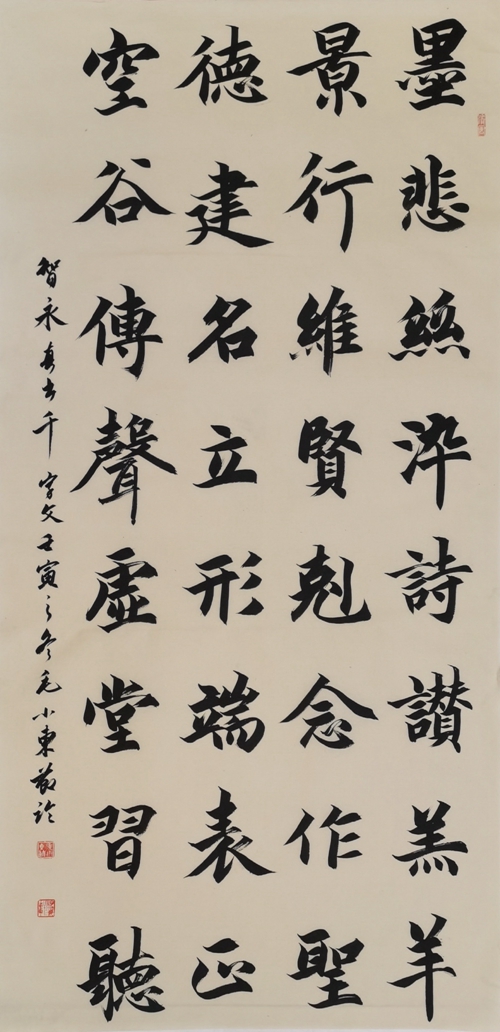 墨悲絲淬詩讃羔羊
景行維賢剋念作聖
德建名立形端表正
空谷傳聲虛堂習聽
智永真書千字文壬寅之冬毛小東敬臨